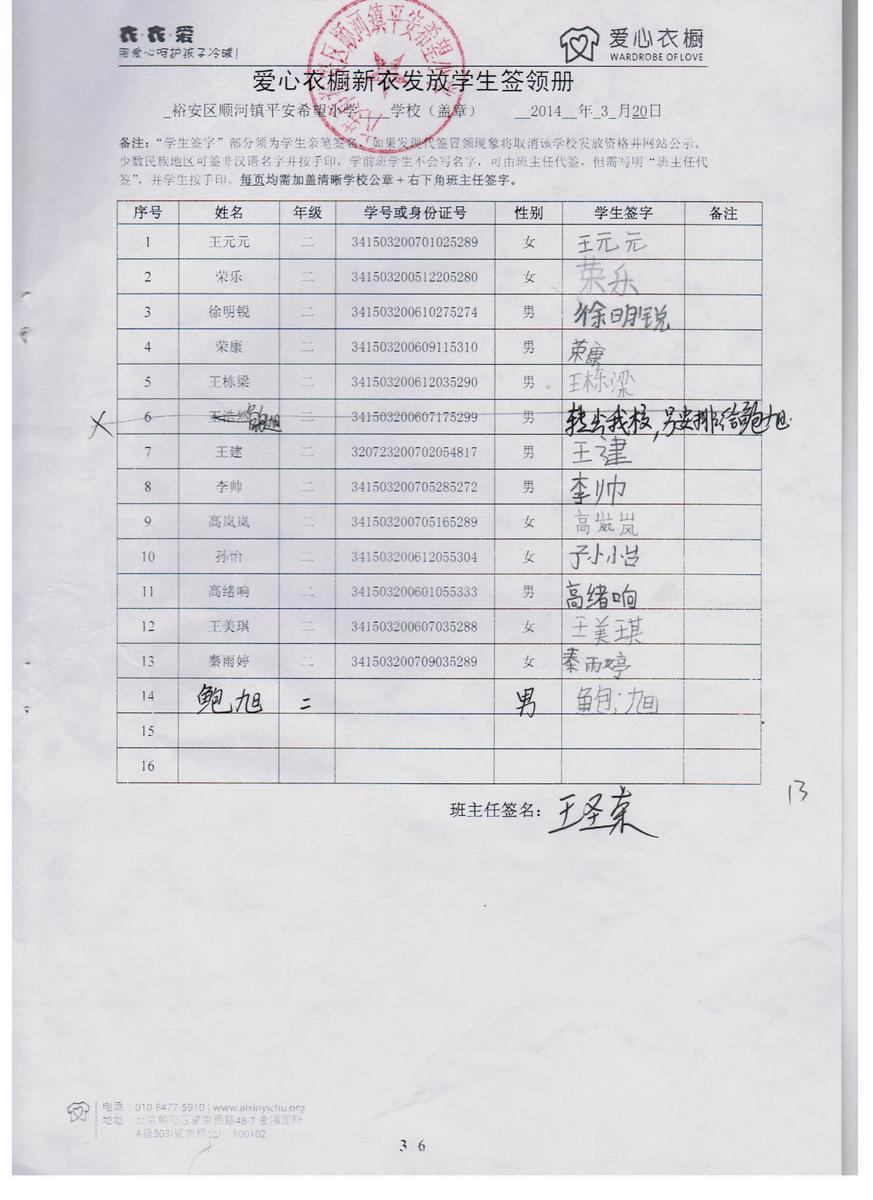 衣·衣·爱
用爱心呵护孩子冷暖!
爱心衣橱
WARDROBE OF LOVE
爱心衣橱新衣发放学生签领册
_裕安区顺河镇平安希望小学____学校（盖章） __2014__年_3_月20日
备注："学生签字"部分须为学生亲笔签名，如果发现代签冒领现象将取消该学校发放资格并网站公示。
少数民族地区可签非汉语名字并按手印，学前班学生不会写名字，可由班主任代签，但需写明"班主任代
签"，并学生按手印。每页均需加盖清晰学校公章+右下角班主任签字。
序号 姓名 年级 学号或身份证号 性别 学生签字 备注
1 王元元 二 341503200701025289 女 王元元
2 荣乐 二 341503200512205280 女 荣乐
3 徐明锐 二 341503200610275274 男 徐明锐
4 荣康 二 341503200609115310 男 荣康
5 王栋梁 二 341503200612035290 男 王栋梁
X 6 王浩然 鲍旭 二 341503200607175299 男 转出我校，另安排给鲍旭.
7 王建 二 320723200702054817 男 王建
8 李帅 二 341503200705285272 男 李帅
9 高岚岚 二 341503200705165289 女 高岚岚
10 孙怡 二 341503200612055304 女 孙怡
11 高绪响 二 341503200601055333 男 高绪响
12 王美琪 二 341503200607035288 女 王美琪
13 秦雨婷 二 341503200709035289 女 秦雨婷
14 鲍旭 二 男 鲍旭
15
16
13
班主任签名：王圣荣
电话：010-8477-5910 | www.aixinyichu.org
地址：北京朝阳区望京西路48-7 金隅国际
A座303(望京桥北) 100102
3 6